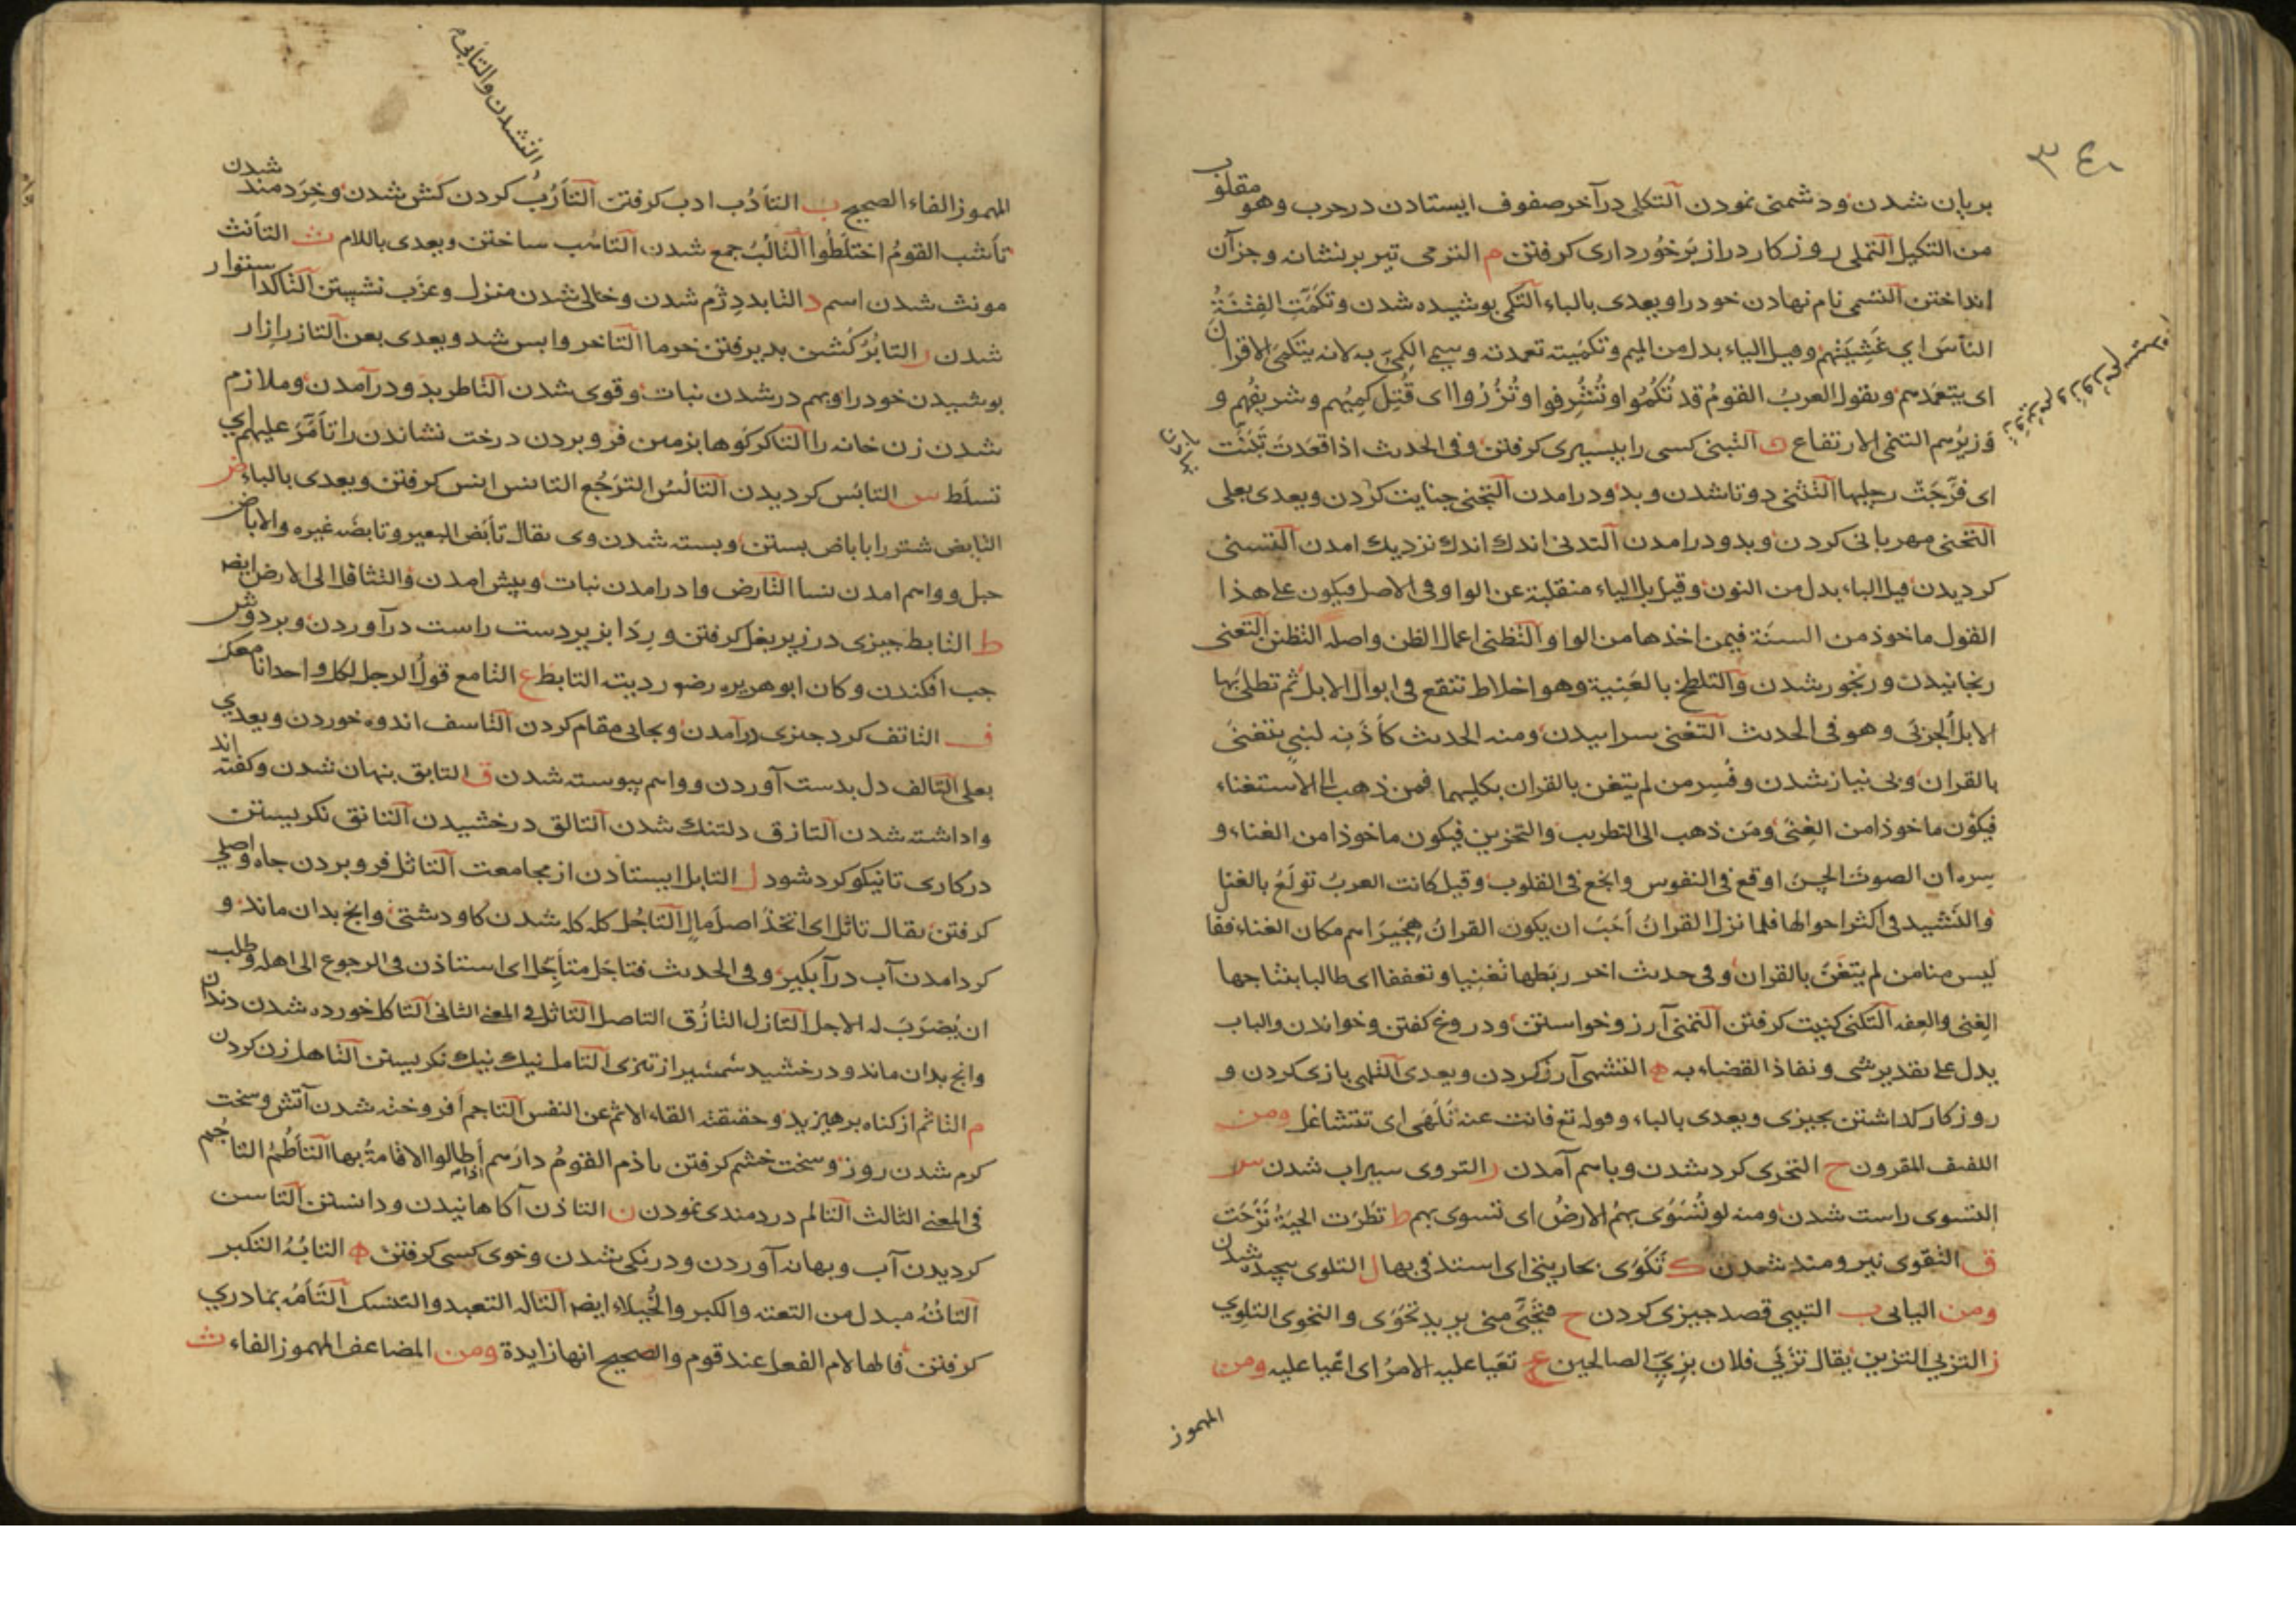 ٣٤٠
بریان شدن ودشمنی نمودن التکلی درآخر صفوف ایستادن درحرب وهو مقلوب
من التکیل التملی روزکار دراز برخورداری کرفتن م الترمی تیر برنشانه وجزآن
انداختن التسمی نام نهادن خود را ویعدی بالباء التکمی پوشیده شدن وتکمت الفتنة
الناس ای غشیتهم وقیل الیاء بدل من المیم وتکمیته تعمدته وسمی الکمی به لانه یتکمی الاقران
ای یتعمدهم ویقول العرب القوم قد تکموا وتشرفوا وتزوروا ای قتل کمیهم وشریفهم و
وزیرهم التنمی الارتفاع ن التبنی کسی را بپسری کرفتن وفی الحدیث اذا قعدت تبنت
ای فرجت رجلیها التثنی دوتا شدن وبدو درامدن التجنی جنایت کردن ویعدی بعلی
التحنی مهربانی کردن وبدو درامدن التدنی اندك اندك نزدیك امدن التسنی
کردیدن قیل الیاء بدل من النون وقیل بل الیاء منقلبة عن الواو فی الاصل فیکون علی هذا
القول ماخوذ من السنة فیمن اخذها من الواو التظنی اعمال الظن واصله التظنن التعنی
رنجانیدن ورنجور شدن والتلطخ بالعنیة وهو اخلاط تنقع فی ابوال الابل ثم تطلی بها
الابل الجربی وهو فی الحدیث التغنی سراییدن ومنه الحدیث کاذنه لنبی یتغنی
بالقران وبی نیاز شدن وفسر من لم یتغن بالقران بکلیهما فمن ذهب الی الاستغناء
فیکون ماخوذا من الغنی ومن ذهب الی التطریب والتحزین فیکون ماخوذا من الغناء و
سره ان الصوت الحسن اوقع فی النفوس وانجع فی القلوب وقیل کانت العرب تولع بالغناء
والنشید فی اکثر احوالها فلما نزل القران احب ان یکون القران هجیراهم مکان الغناء فقال
لیس منا من لم یتغن بالقران وفی حدیث اخر ربطها تغنیا وتعففا ای طالبا بنتاجها
الغنی والعفه التکنی کنیت کرفتن التمنی آرزو خواستن ودروغ کفتن وخواندن والباب
یدل علی تقدیر شی ونفاذ القضاء به ه التشهی آرزو کردن ویعدی التلهی بازی کردن و
روزکار کذاشتن بچیزی ویعدی بالباء وقوله تع فانت عنه تلهی ای تتشاغل ومن
اللفیف المقرون ح التحوی کرد شدن وباهم آمدن ر التروی سیراب شدن س
التسوی راست شدن ومنه لو تسوی بهم الارض ای تسوی بهم ط تطوت الحیة تزحت
ق التقوی نیرومند شدن ك تکوی بحاریتی ای استدفی بها ل التلوی پیچیده شدن
ومن الیایی ب التبیی قصد چیزی کردن ح فتحیی منی یرید تحوی والتحوی التلوی
ز التزیی التزین یقال تزیی فلان بزی الصالحین ع تعیا علیه الامر ای اعیا علیه ومن
المهموز
المهموز الفاء الصحیح ب التادب ادب کرفتن التارب کردن کش شدن وخردمند شدن
تاشب القوم اختلطوا التالب جمع شدن التاهب ساختن ویعدی باللام ث التانث
مونث شدن اسم د التابد دژم شدن وخالی شدن منزل وعزب نشستن التاکد استوار
شدن ر التابر کشن پذیرفتن خرما التاخر واپس شد ویعدی بعن التازر ازار
پوشیدن خود را وبهم درشدن نبات وقوی شدن التاطر بدو درآمدن وملازم
شدن زن خانه را التاکر کوها بزمین فرو بردن درخت نشاندن را تامر علیهم ای
تسلط س التابس کردیدن التالس الترجع التانس انس کرفتن ویعدی بالباء ض
التابض شتر را باباض بستن وبسته شدن وی یقال تابض البعیر وتابضه غیره والاباض
حبل وواهم امدن نسا التارض وادرامدن نبات وپیش امدن والتثاقل الی الارض ایضا
ط التابط چیزی در زیر بغل کرفتن وردا بزیر دست راست درآوردن وبر دوش
چپ افکندن وکان ابو هریره رضو ردیته التابط ع التامع قول الرجل لکل واحد انا معك
ف التاثف کرد چیزی درآمدن وبجایی مقام کردن التاسف اندوه خوردن ویعدی
بعلی التالف دل بدست آوردن وواهم پیوسته شدن ق التابق پنهان شدن وکفته اند
واداشته شدن التازق دلتنك شدن التالق درخشیدن التانق نکریستن
درکاری تا نیکو کرد شود ل التابل ایستادن از مجامعت التاثل فرو بردن چاه واصلی
کرفتن یقال تاثل ای اتخذ اصل مال التاجل کله کله شدن کاو دشتی وانچ بدان ماند و
کردامدن آب درآبکیر وفی الحدیث فتاجل متاجل ای استاذن فی الرجوع الی اهله وطلب
ان یضرب له الاجل التازل التازق التاصل التاثل فی المعنی الثانی التاکل خورده شدن دندان
وانچ بدان ماند ودرخشید شمشیر از تیزی التامل نیك نیك نکریستن التاهل زن کردن
م التاثم از کناه برهیزید وحقیقته القاء الاثم عن النفس التاجم افروخته شدن آتش وسخت
کرم شدن روز وسخت خشم کرفتن تاذم القوم دارهم اطالوا الاقامة بها التاطم التاجم
فی المعنی الثالث التالم دردمندی نمودن ن التاذن آکاهانیدن ودانستن التاسن
کردیدن آب وبهانه آوردن ودرنکی شدن وخوی کسی کرفتن ه التابه التکبر
التاته مبدل من التعته والکبر والخیلاء ایضا التاله التعبد والتنسك التامه بمادری
کرفتن فالها لام الفعل عند قوم والصحیح انها زایدة ومن المضاعف المهموز الفاء ث